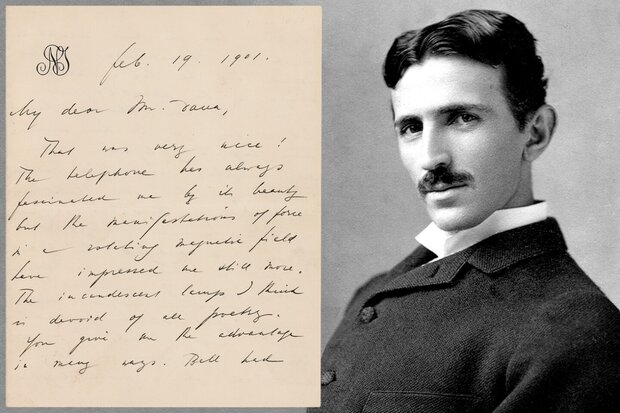 NT
Feb. 19. 1901.
My dear Mr.
That was very nice!
The telephone has always
fascinated me by its beauty
but the manifestations of force
in a rotating magnetic field
have impressed me still more.
The incandescent lamp I think
is devoid of all poetry.
You give me the advantage
in many ways. Bell had